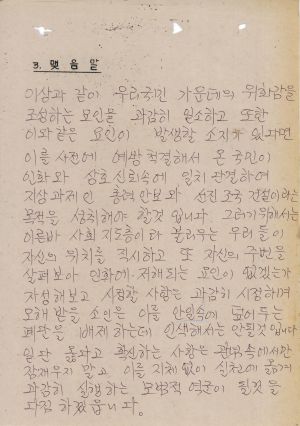 3. 맺 음 말
이상과 같이 우리국민 가운데의 위화감을
조성하는 모인물 과감히 일소하고 또한
이와같은 요인이 발생할 소지가 있다면
이를 사전에 예방 척결해서 온 국민이
인화와 상호 신뢰속에 일치 단결하여
지상과제인 총력안보와 선진조국 건설이라는
목적을 성취해야 할것 입니다. 그러기위해서는
이른바 사회 지도층이라 불리우는 우리들이
자신의 위치를 직시하고 또 자신의 주변을
살펴보아 인화에 저해되는 요인이 없겠는가
자성해보고 시정할 사항은 과감히 시정하며
오해 받을 소인은 이를 안일속에 덮어두는
폐단을 배제하는데 인색해서는 안될것 입니다
일단 옳다고 확신하는 사항은 관념속에서만
잠재우지 말고 이를 지체없이 실천에 옮겨
과감히 실행하는 모범적 역군이 될것을
다짐 하겠읍니다.